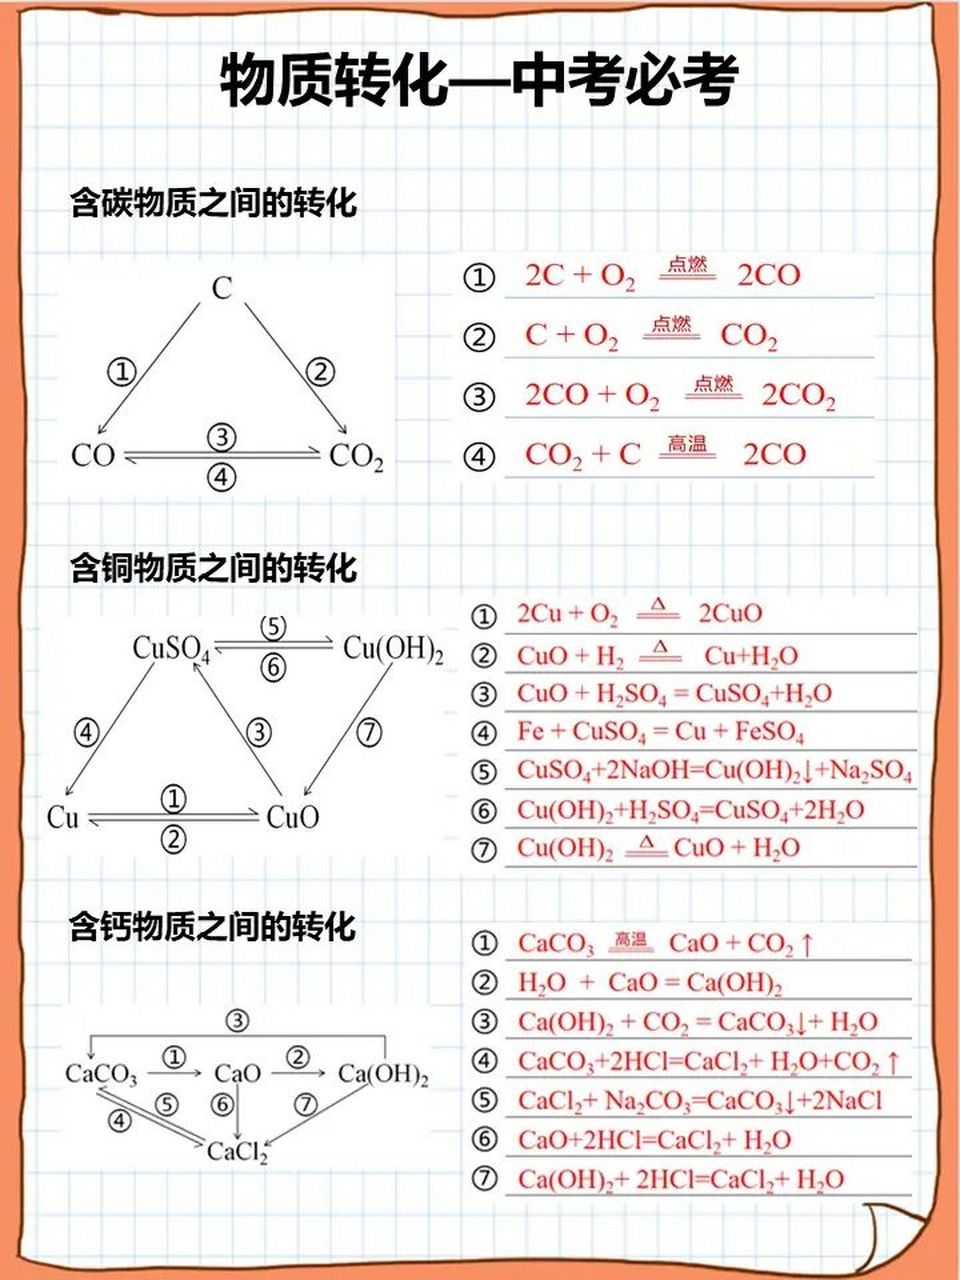 物质转化—中考必考
含碳物质之间的转化
C
① ②
CO ③ CO₂
④
① 2C + O₂ 点燃 2CO
② C + O₂ 点燃 CO₂
③ 2CO + O₂ 点燃 2CO₂
④ CO₂ + C 高温 2CO
含铜物质之间的转化
⑤
CuSO₄ Cu(OH)₂
⑥
④ ③ ⑦
①
Cu CuO
②
① 2Cu + O₂ △ 2CuO
② CuO + H₂ △ Cu+H₂O
③ CuO + H₂SO₄ = CuSO₄+H₂O
④ Fe + CuSO₄ = Cu + FeSO₄
⑤ CuSO₄+2NaOH=Cu(OH)₂↓+Na₂SO₄
⑥ Cu(OH)₂+H₂SO₄=CuSO₄+2H₂O
⑦ Cu(OH)₂ △ CuO + H₂O
含钙物质之间的转化
③
① ②
CaCO₃ CaO Ca(OH)₂
④ ⑤ ⑥ ⑦
CaCl₂
① CaCO₃ 高温 CaO + CO₂ ↑
② H₂O + CaO = Ca(OH)₂
③ Ca(OH)₂ + CO₂ = CaCO₃↓+ H₂O
④ CaCO₃+2HCl=CaCl₂+ H₂O+CO₂ ↑
⑤ CaCl₂+ Na₂CO₃=CaCO₃↓+2NaCl
⑥ CaO+2HCl=CaCl₂+ H₂O
⑦ Ca(OH)₂+ 2HCl=CaCl₂+ H₂O